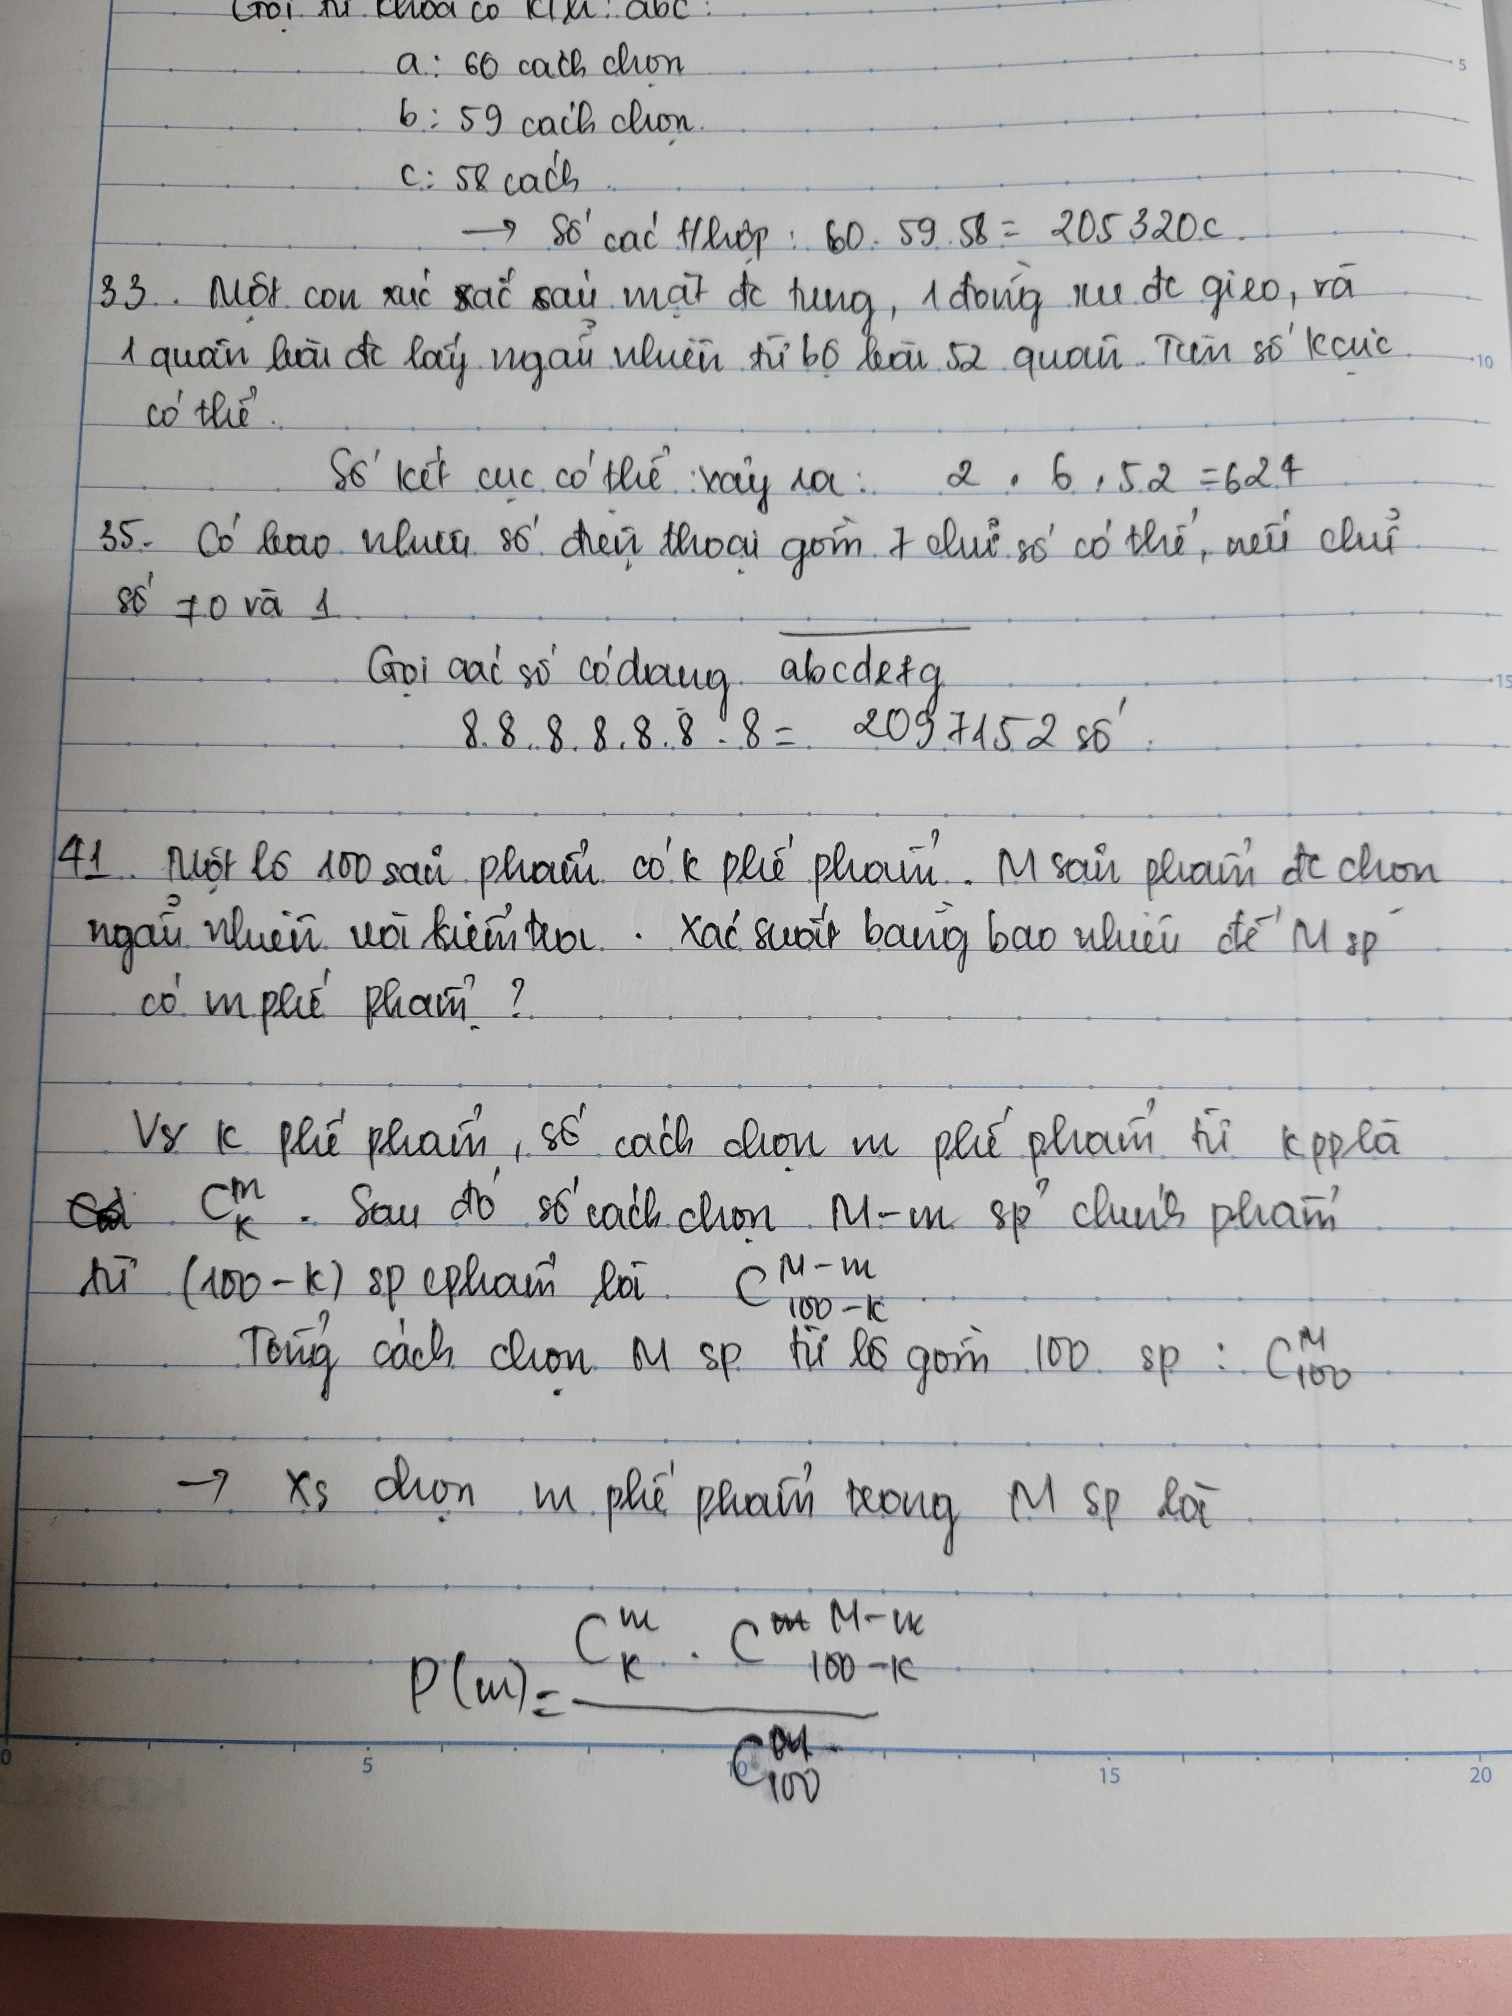 Gọi từ khoá có kí tự: abc:
a: 60 cách chọn
b: 59 cách chọn.
c: 58 cách
→ Số các t/hợp: 60. 59. 58 = 205320c.
33. Một con xúc xắc sáu mặt đc tung, 1 đồng xu đc gieo, và
1 quân bài đc lấy ngẫu nhiên từ bộ bài 52 quân. Tìm số kcục
có thể.
Số kết cục có thể xảy ra: 2 . 6 . 52 = 624
35. Có bao nhiêu số điện thoại gồm 7 chữ số có thể, nếu chữ
số ≠ 0 và 1
Gọi các số có dạng abcdefg
8.8.8.8.8.8.8 = 2097152 số
41. Một lô 100 sản phẩm có k phế phẩm. M sản phẩm đc chọn
ngẫu nhiên và kiểm tra. Xác suất bằng bao nhiêu để M sp
có m phế phẩm?
Vs k phế phẩm, số cách chọn m phế phẩm từ k pp là
C_k^m. Sau đó số cách chọn M-m sp chính phẩm
từ (100-k) sp cphẩm là C_{100-k}^{M-m}
Tổng cách chọn M sp từ lô gồm 100 sp: C_{100}^M
→ Xs chọn m phế phẩm trong M sp là
P(m) = \frac{C_k^m . C_{100-k}^{M-m}}{C_{100}^M}
0 5 10 15 20
5
10
15